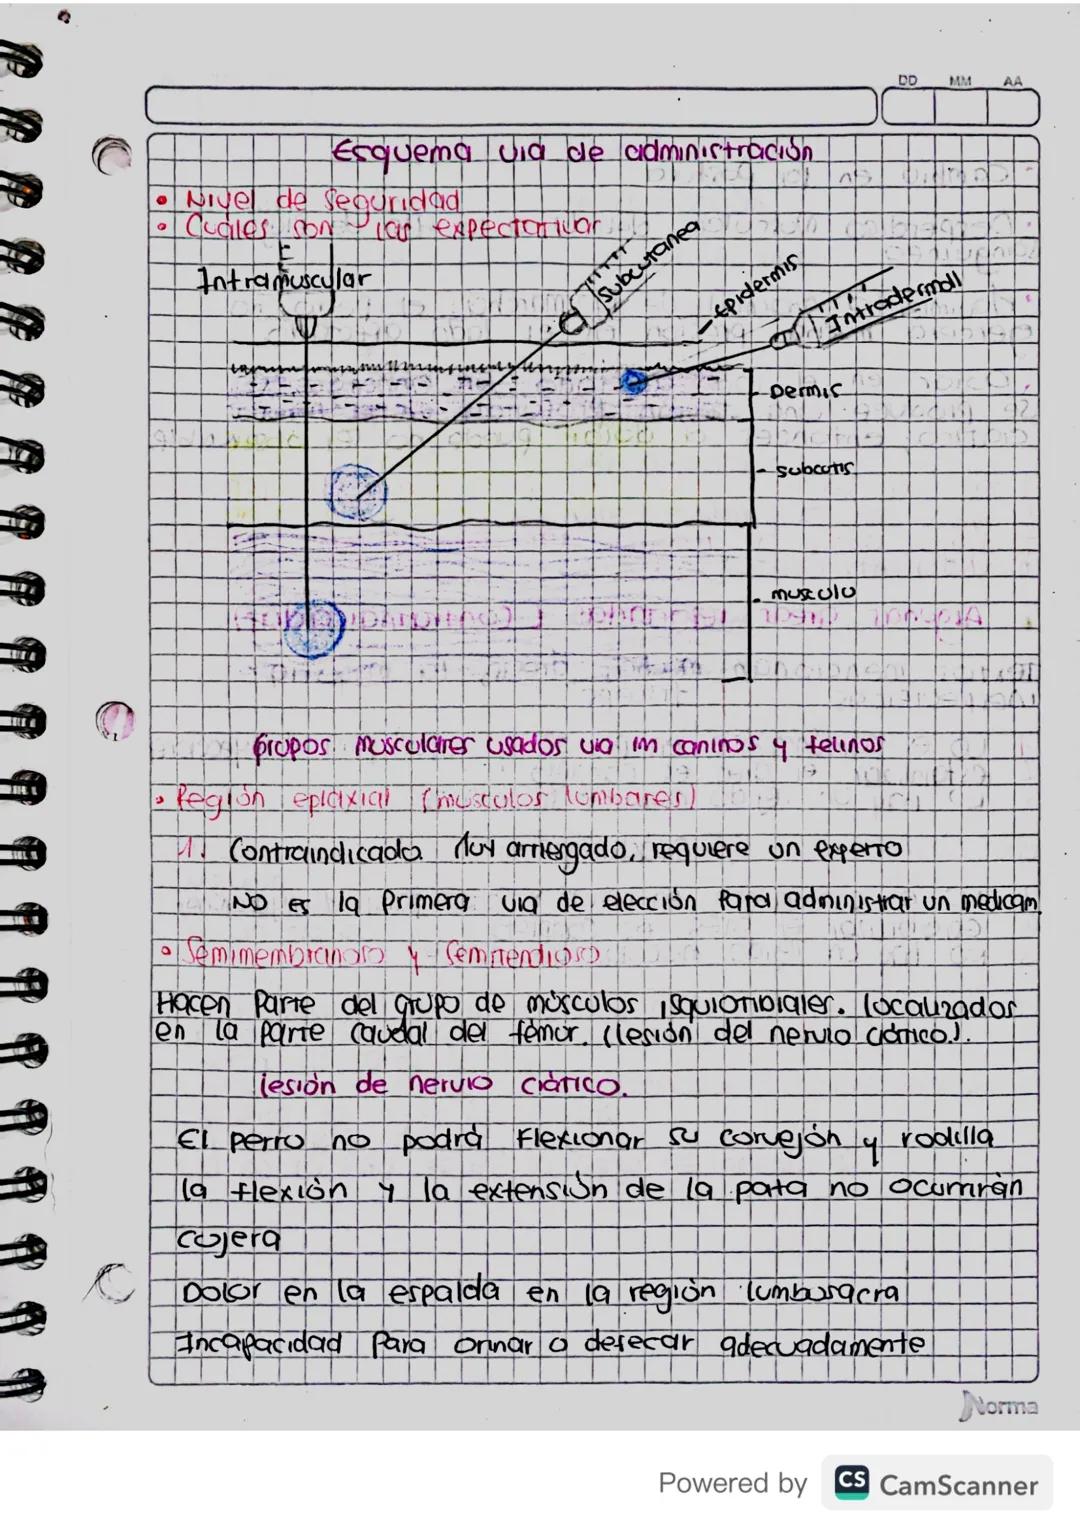 DD MM AA
Esquema via de administración
• Nivel de seguridad
• Cuáles son las expectativas
Intramuscular
Subcutanea
- Epidermis
Intradermall
- Dermis
- subcutis
- musculo
Grupos musculares usados via im caninos y felinos
• Región eplaxial (musculos lumbares)
1. Contraindicada Muy arriesgado, requiere un experto
NO es la primera via de elección para administrar un medicam
• Semimembranoso y semitendioso
Hacen parte del grupo de músculos isquiotibiales. localizados
en la parte caudal del fémur. (lesión del nervio ciático).
lesión de nervio ciático.
El perro no podrá flexionar su corvejón y rodilla
la flexión y la extensión de la pata no ocurrirán
cojera
Dolor en la espalda en la región lumbosacra
Incapacidad para orinar o defecar adecuadamente
Norma
Powered by CS CamScanner